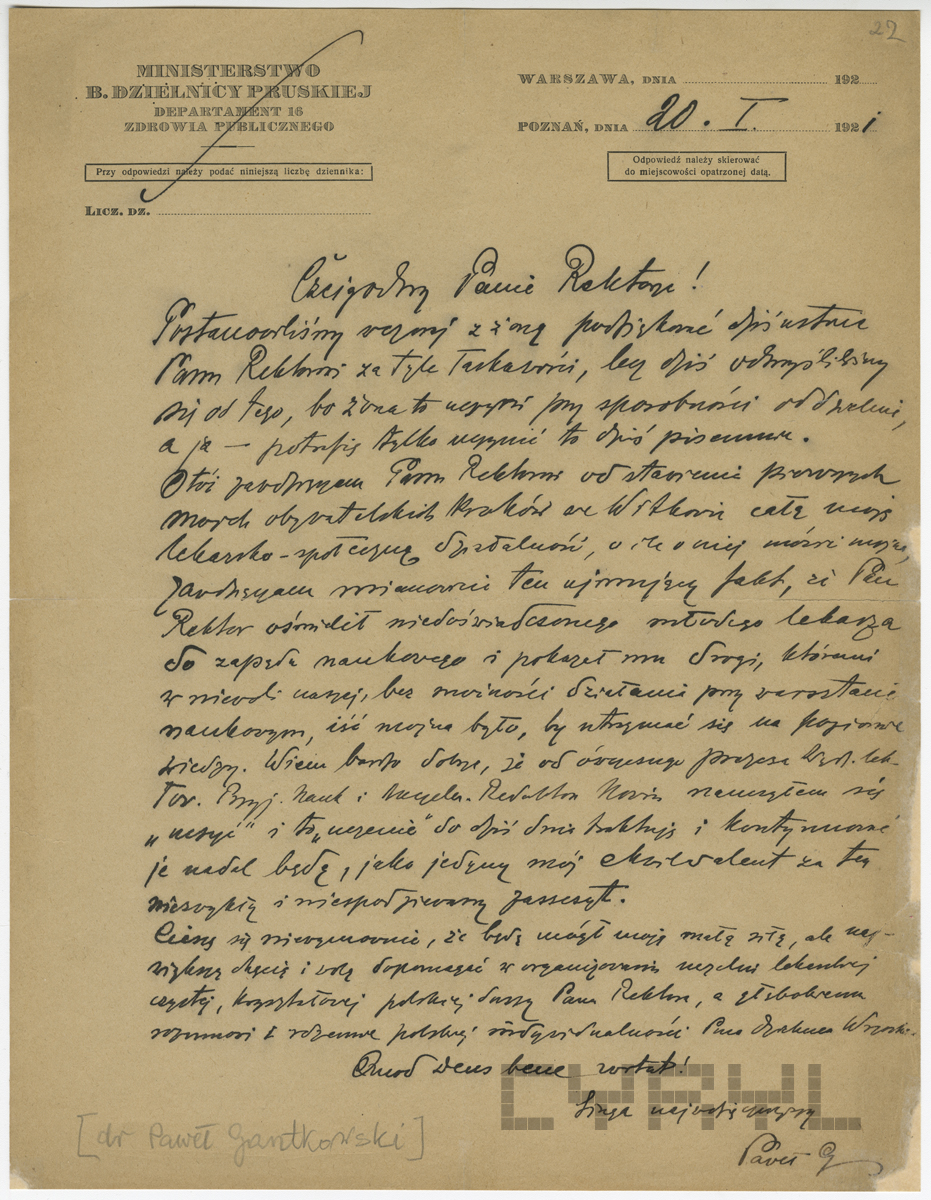 22
MINISTERSTWO
B. DZIELNICY PRUSKIEJ
DEPARTAMENT 16
ZDROWIA PUBLICZNEGO
Przy odpowiedzi należy podać niniejszą liczbę dziennika:
LICZ. DZ.
WARSZAWA, DNIA 192
POZNAŃ, DNIA 20. I. 1921
Odpowiedź należy skierować
do miejscowości opatrzonej datą.
Czcigodny Panie Rektorze!
Postanowiliśmy wczoraj z żoną podziękować dziś ustnie
Panu Rektorowi za tyle łaskawości, lecz dziś odmyśliliśmy
się od tego, bo żona to uczyni przy sposobności oddzielnie,
a ja — potrafię tylko uczynić to dziś pisemnie.
Otóż zawdzięczam Panu Rektorowi od stawienia pierwszych
moich obywatelskich kroków we Witkowie całą moją
lekarsko-społeczną działalność, o ile o niej mówić można,
zawdzięczam mianowicie ten ujmujący fakt, że Pan
Rektor ośmielił niedoświadczonego młodego lekarza
do zapędu naukowego i pokazał mu drogi, któremi
w niewoli naszej, bez możności działania przy warsztacie
naukowym, iść można było, by utrzymać się na poziomie
wiedzy. Wiem bardzo dobrze, że od ówczesnego prezesa Wydz. lek-
Tow. Przyj. Nauk i Redaktora Nowin nauczyłem się
„uczyć" i to „uczenie" do dziś dnia traktuję i kontynuować
je nadal będę, jako jedyny mój ekwiwalent za ten
niezwykły i niespodziewany zaszczyt.
Cieszę się niewymownie, że będę mógł moją małą siłą, ale naj-
większą chęcią i wolą dopomagać w organizowaniu uczelni lekarskiej
czystej, kryształowej polskiej duszy Pana Rektora, a głębokiemu
rozumowi i rdzennie polskiej indywidualności Pana Dziekana
Quod Deus bene vortat!
Sługa najwdzięczniejszy
Paweł G
[dr Paweł Gantkowski]
CYRYL